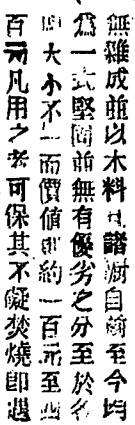 無雜成並以木料 諸 自 至今均
爲一式堅固 無有優劣之分至於名
大小不一而價值 約一百元至四
百元凡用之者可保其不礙焚燒即遇